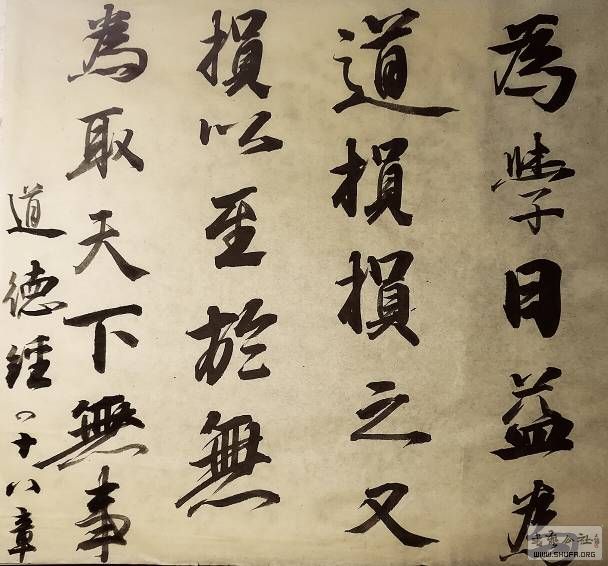 為學目益為
道損損之又
損以至於無
為取天下無事
道德經四十八章
書藝公社
WWW.SHUFA.ORG